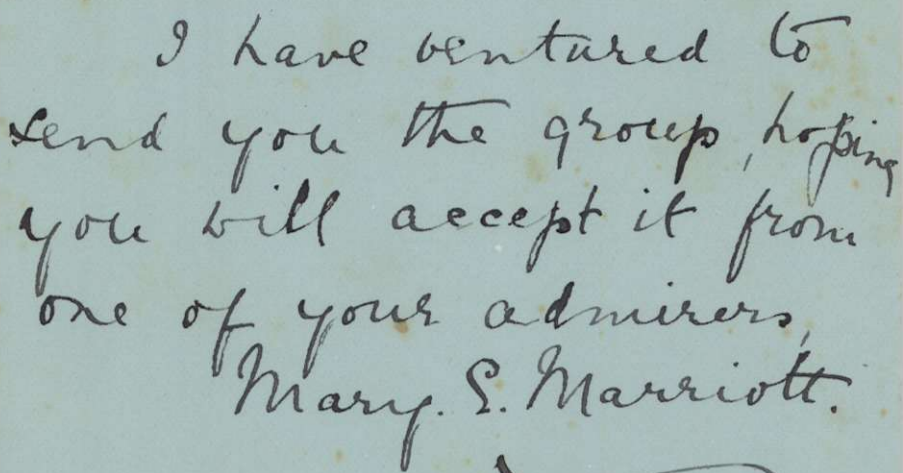 I have ventured to
send you the group, hoping
you will accept it from
one of your admirers,
Mary. E. Marriott.